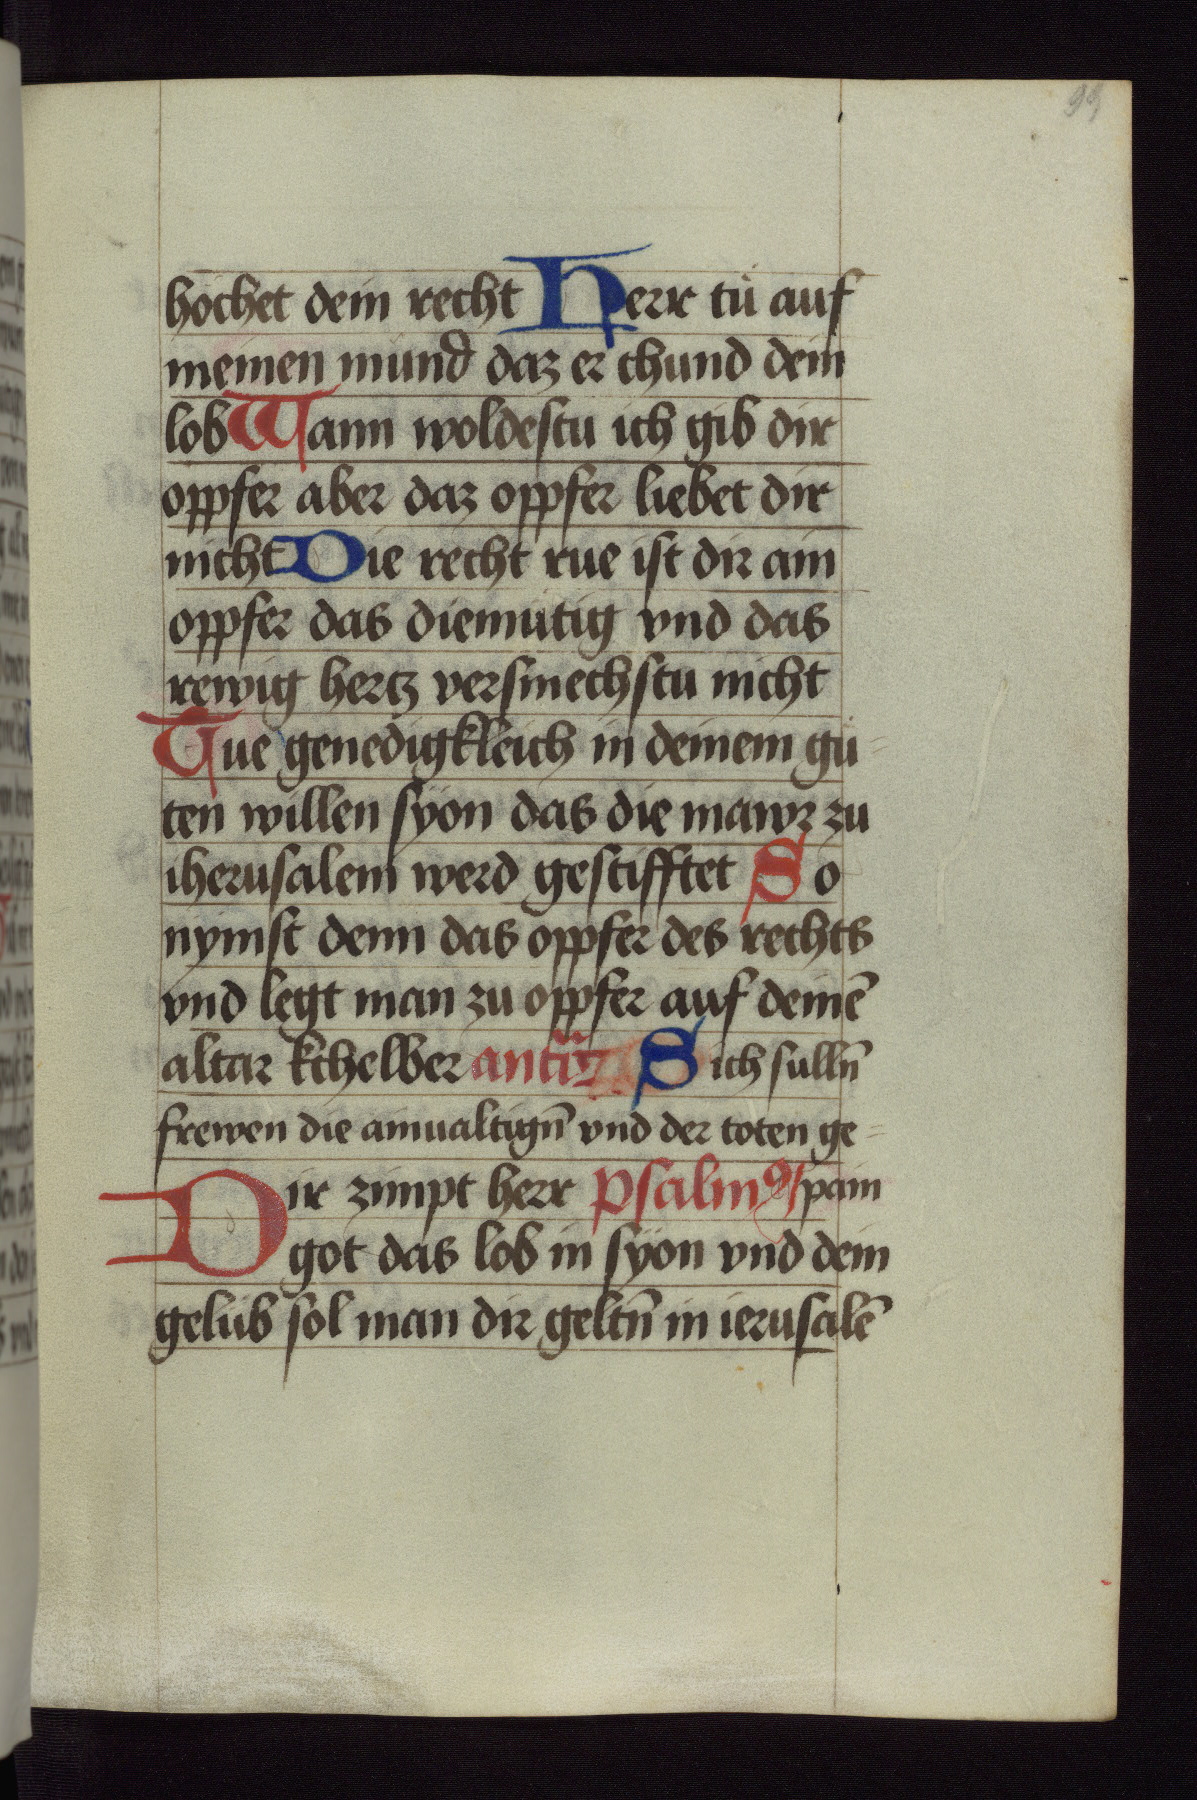 99
höchet dein recht Herr tů auf
meinen mund daz er chund dein
lob Wann woldestu ich gib dir
oppfer aber daz oppfer liebet dir
nicht Die recht rue ist dir ain
oppfer das diemütig vnd das
rewig hertz versmechstu nicht
Tue genedigkleich in deinem gů=
ten willen syon das die mawr zu
iherusalem werd gestifftet So
nymst denn das oppfer des rechts
vnd legt man zu oppfer auf deinē
altar kchelber Sich sullñ
frewen die ainualtigñ vnd der toten ge=
Dir zimpt herr Psalmꝰ /pain
got das lob in syon vnd dein
gelüb sol man dir geltñ in ierusalē